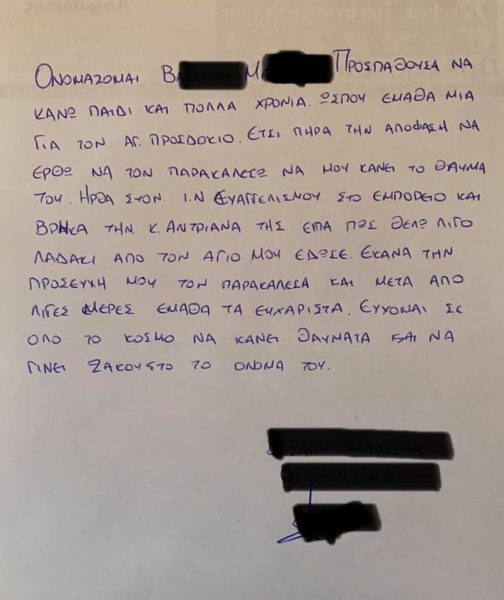 ΟΝΟΜΑΖΟΜΑΙ ΠΡΟΣΠΑΘΟΥΣΑ ΝΑ
ΚΑΝΩ ΠΑΙΔΙ ΚΑΙ ΠΟΛΛΑ ΧΡΟΝΙΑ. ΩΣΠΟΥ ΕΜΑΘΑ ΜΙΑ
ΓΙΑ ΤΟΝ ΑΓ. ΠΡΟΣΔΟΚΙΟ. ΕΤΣΙ ΠΗΡΑ ΤΗΝ ΑΠΟΦΑΣΗ ΝΑ
ΕΡΘΩ ΝΑ ΤΟΝ ΠΑΡΑΚΑΛΕΣΩ ΝΑ ΜΟΥ ΚΑΝΕΙ ΤΟ ΘΑΥΜΑ
ΤΟΥ. ΗΡΘΑ ΣΤΟΝ Ι.Ν ΕΥΑΓΓΕΛΙΣΜΟΥ ΣΤΟ ΕΜΠΟΡΕΙΟ ΚΑΙ
ΒΡΗΚΑ ΤΗΝ Κ. ΑΝΤΡΙΑΝΑ ΤΗΣ ΕΠΑ ΠΩΣ ΘΕΛΩ ΛΙΓΟ
ΛΑΔΑΚΙ ΑΠΟ ΤΟΝ ΑΓΙΟ ΜΟΥ ΕΔΩΣΕ. ΕΚΑΝΑ ΤΗΝ
ΠΡΟΣΕΥΧΗ ΜΟΥ ΤΟΝ ΠΑΡΑΚΑΛΕΣΑ ΚΑΙ ΜΕΤΑ ΑΠΟ
ΛΙΓΕΣ ΜΕΡΕΣ ΕΜΑΘΑ ΤΑ ΕΥΧΑΡΙΣΤΑ. ΕΥΧΟΜΑΙ ΣΕ
ΟΛΟ ΤΟ ΚΟΣΜΟ ΝΑ ΚΑΝΕΙ ΘΑΥΜΑΤΑ ΚΑΙ ΝΑ
ΓΙΝΕΙ ΞΑΚΟΥΣΤΟ ΤΟ ΟΝΟΜΑ ΤΟΥ.